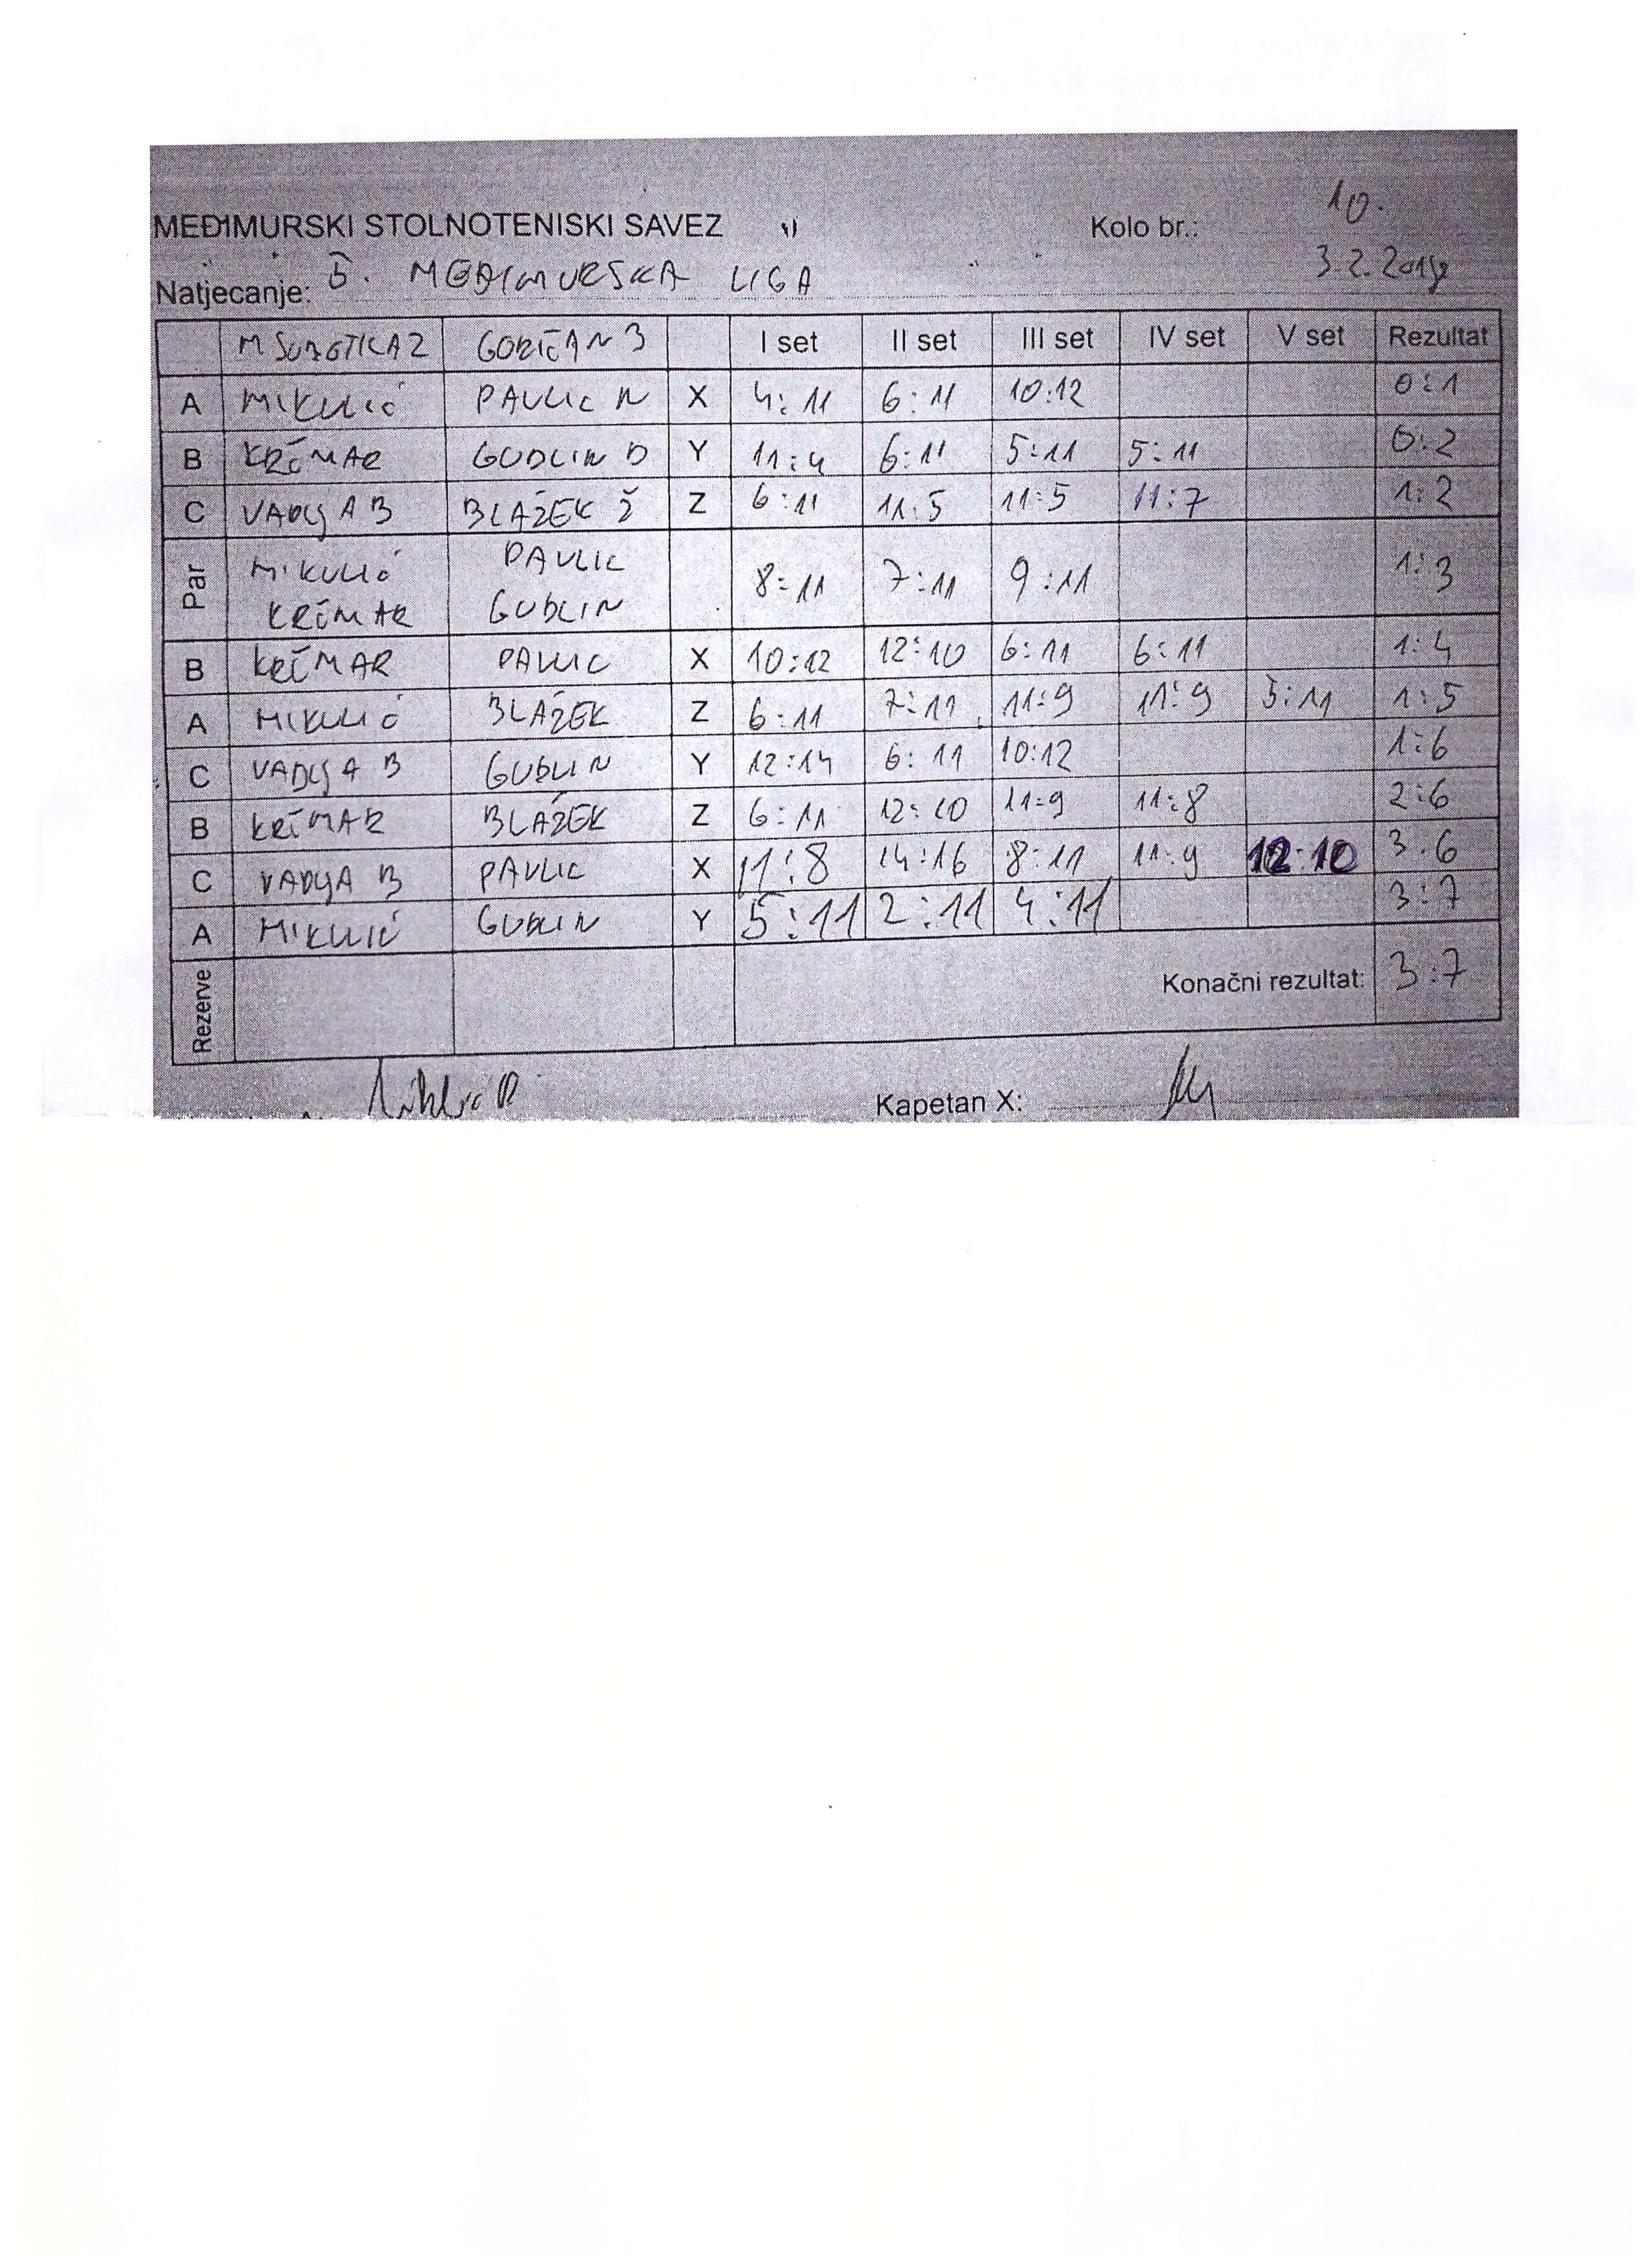 MEĐIMURSKI STOLNOTENISKI SAVEZ Kolo br.: 10.
Natjecanje: 5. MEĐIMURSKA LIGA 3.2.
M SUBOTICA 2 GORIČAN 3 I set II set III set IV set V set Rezultat
A MIKULIĆ PAVLIC N X 4:11 6:11 10:12 0:1
B KRČMAR GUDLIN D Y 11:4 6:11 5:11 5:11 0:2
C VADLJA B BLAŽEK Ž Z 6:11 11:5 11:5 11:7 1:2
Par MIKULIĆ KRČMAR PAVLIC GUDLIN 8:11 7:11 9:11 1:3
B KRČMAR PAVLIC X 10:12 12:10 6:11 6:11 1:4
A MIKULIĆ BLAŽEK Z 6:11 7:11 11:9 11:9 5:11 1:5
C VADLJA B GUDLIN Y 12:14 6:11 10:12 1:6
B KRČMAR BLAŽEK Z 6:11 12:10 11:9 11:8 2:6
C VADLJA B PAVLIC X 11:8 14:16 8:11 11:9 12:10 3:6
A MIKULIĆ GUDLIN Y 5:11 2:11 4:11 3:7
Rezerve Konačni rezultat: 3:7
Kapetan X: